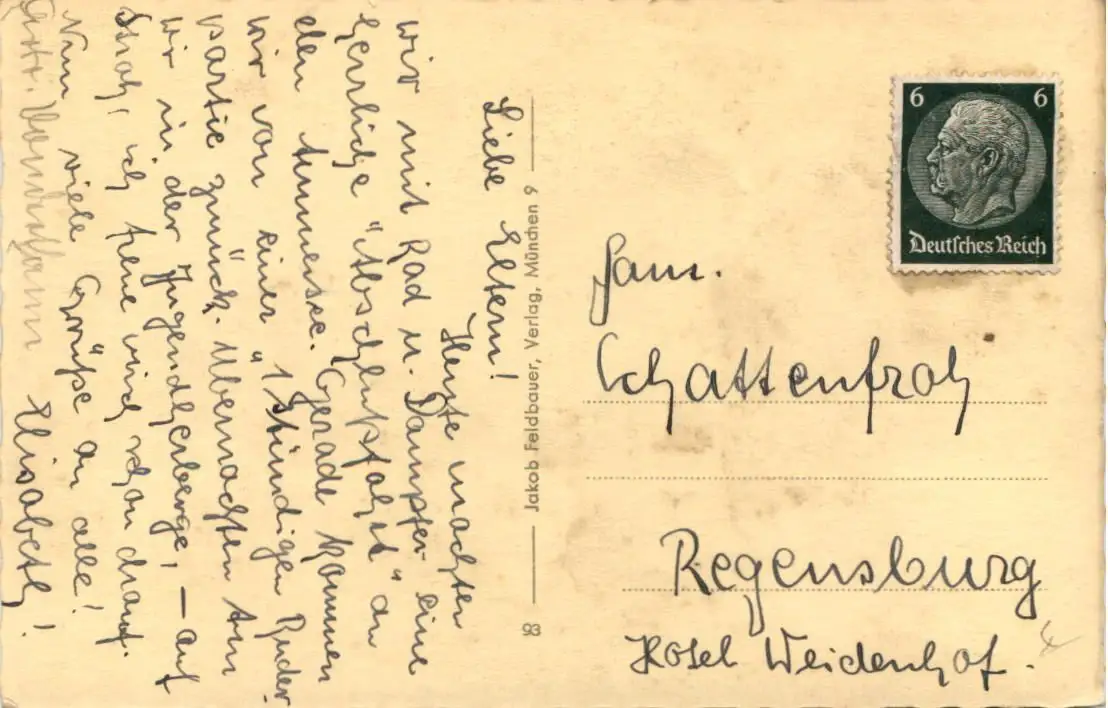 Liebe Eltern!
Heute machten
wir mit Rad u. Dampfer eine
herrliche "Abschlußfahrt" an
den Ammersee. Gerade kommen
wir von einer "1stündigen Ruder
partie zurück. Übernachten tun
wir in der Jugendherberge, – auf
Stroh, ich freue mich schon drauf.
Nun viele Grüße an alle!
Elisabeth!
Jakob Feldbauer, Verlag, München 9
93
6 6
Deutsches Reich
Fam.
Schattenfroh
Regensburg
Hotel Weidenhof.